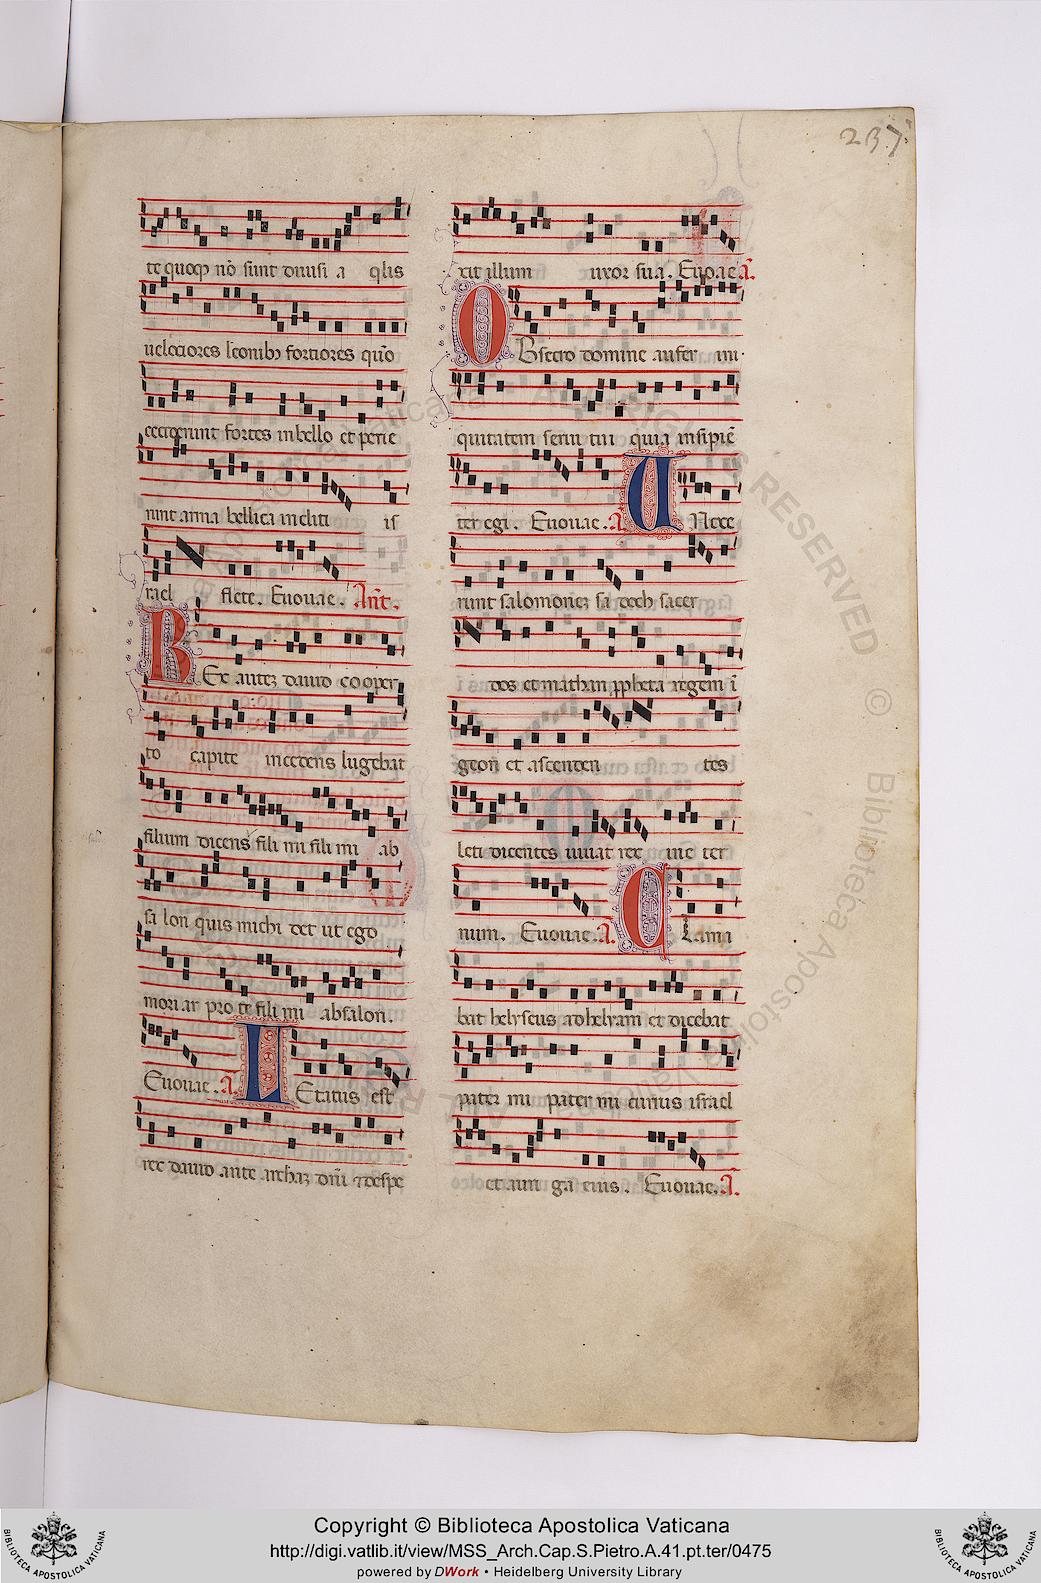 237
te quoq; nõ sunt diuisi a qlis
uelociores leonib; fortiores quõo
ceciderunt fortes in bello et perie
runt arma bellica incliti is
rael flete. Euouae. Ant.
REx autez dauid cooper
to capite incedens lugebat
filium dicens fili mi fili mi ab
salon quis michi det ut ego
moriar pro te fili mi absalon.
Euouae. A.
LEtatus est
rex dauid ante archaz dni
xit illum uxor sua. Euouae A.
OBsecro domine aufer ini
quitatem serui tui quia insipiẽ
ter egi. Euouae. A. UNxe
runt salomonez sadoch sacer
dos et nathan ppheta regem ĩ
geon et ascenden tes
leti dicentes uiuat rex ine ter
num. Euouae. A. CLama
bat helyseus ad helyam et dicebat
pater mi pater mi currus israel
et auriga eius. Euouae. A.
ALL RIGHTS RESERVED © Biblioteca Apostolica Vaticana
Copyright © Biblioteca Apostolica Vaticana
http://digi.vatlib.it/view/MSS_Arch.Cap.S.Pietro.A.41.pt.ter/0475
powered by DWork • Heidelberg University Library
BIBLIOTECA APOSTOLICA VATICANA
BIBLIOTECA APOSTOLICA VATICANA